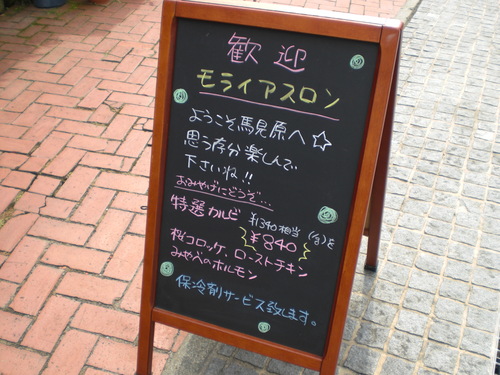 歓迎
モライアスロン
ようこそ馬見原へ☆
思う存分楽しんで
下さいね!!
おみやげにどうぞ…
特選カルビ ¥1340相当(g)を
¥840
桜コロッケ、ローストチキン
みやべのホルモン
保冷剤サービス致します。